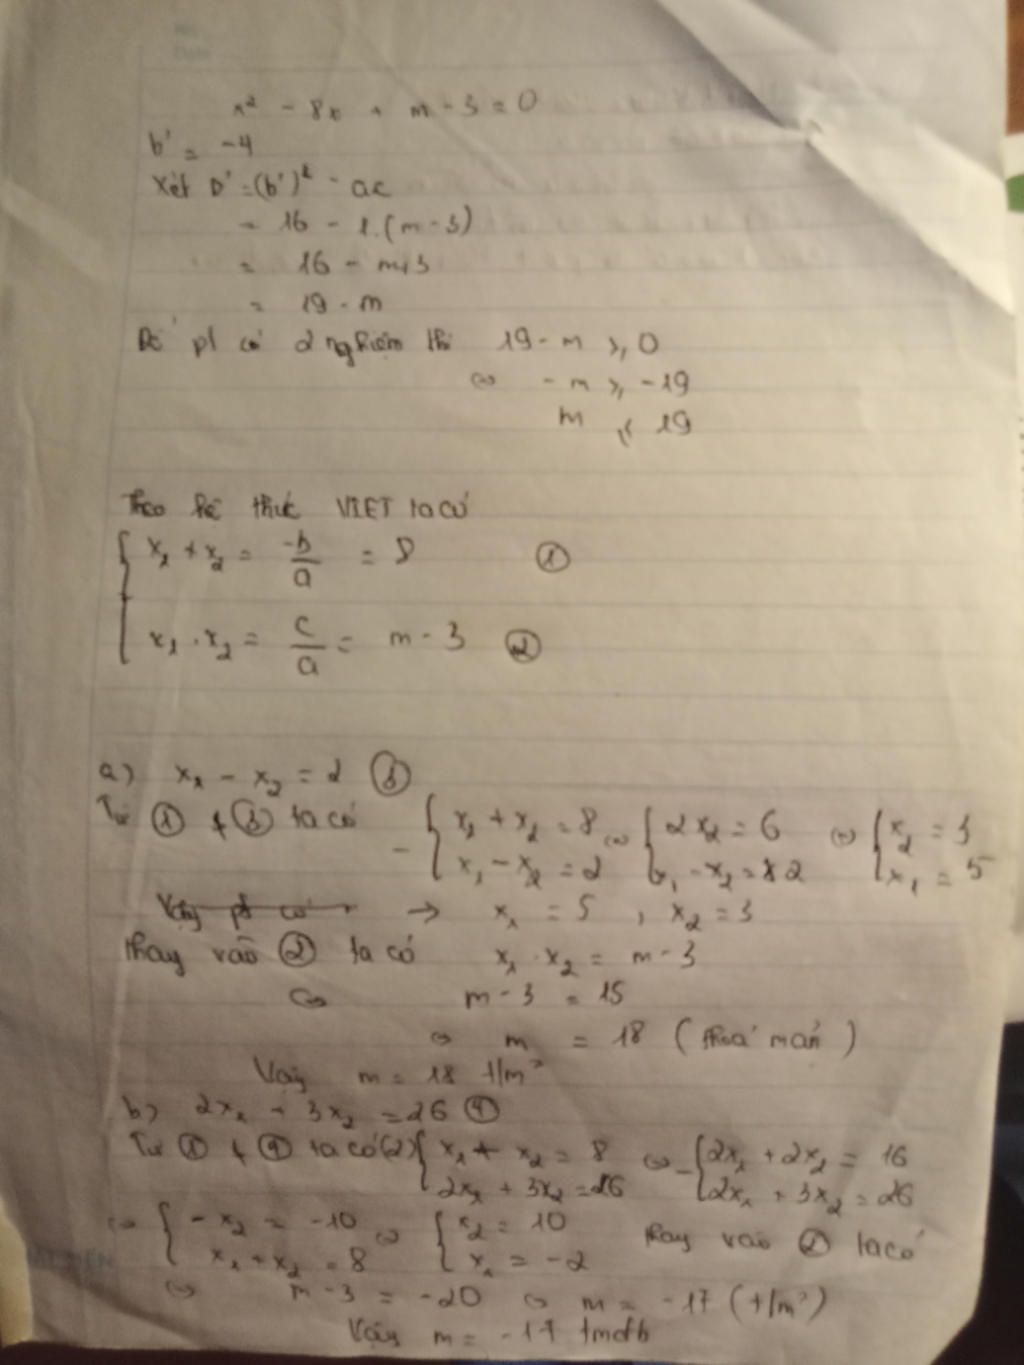 x² - 8x + m - 3 = 0
b' = -4
Xét Δ' = (b')² - ac
= 16 - 1.(m - 3)
= 16 - m+3
= 19 - m
Để pt có 2 nghiệm thì 19 - m ⩾ 0
⇔ - m ⩾ -19
m ⩽ 19
Theo hệ thức VIET ta có
{ x₁ + x₂ = -b/a = 8 ①
x₁ . x₂ = c/a = m - 3 ②
a) x₁ - x₂ = 2 ③
Từ ① & ③ ta có - { x₁ + x₂ = 8 ⇔ { 2x₂ = 6 ⇔ { x₂ = 3
x₁ - x₂ = 2 x₁ - x₂ = 2 x₁ = 5
→ x₁ = 5 , x₂ = 3
thay vào ② ta có x₁ . x₂ = m - 3
⇔ m - 3 = 15
⇔ m = 18 (thoả mãn)
Vậy m = 18 t/m²
b) 2x₁ + 3x₂ = 26 ④
Từ ① & ④ ta có (2) { x₁ + x₂ = 8 ⇔ - { 2x₁ + 2x₂ = 16
2x₁ + 3x₂ = 26 2x₁ + 3x₂ = 26
⇔ { - x₂ = -10 ⇔ { x₂ = 10 thay vào ② ta có
x₁ + x₂ = 8 x₁ = -2
⇔ m - 3 = -20 ⇔ m = -17 (t/m²)
Vậy m = -17 tmđb